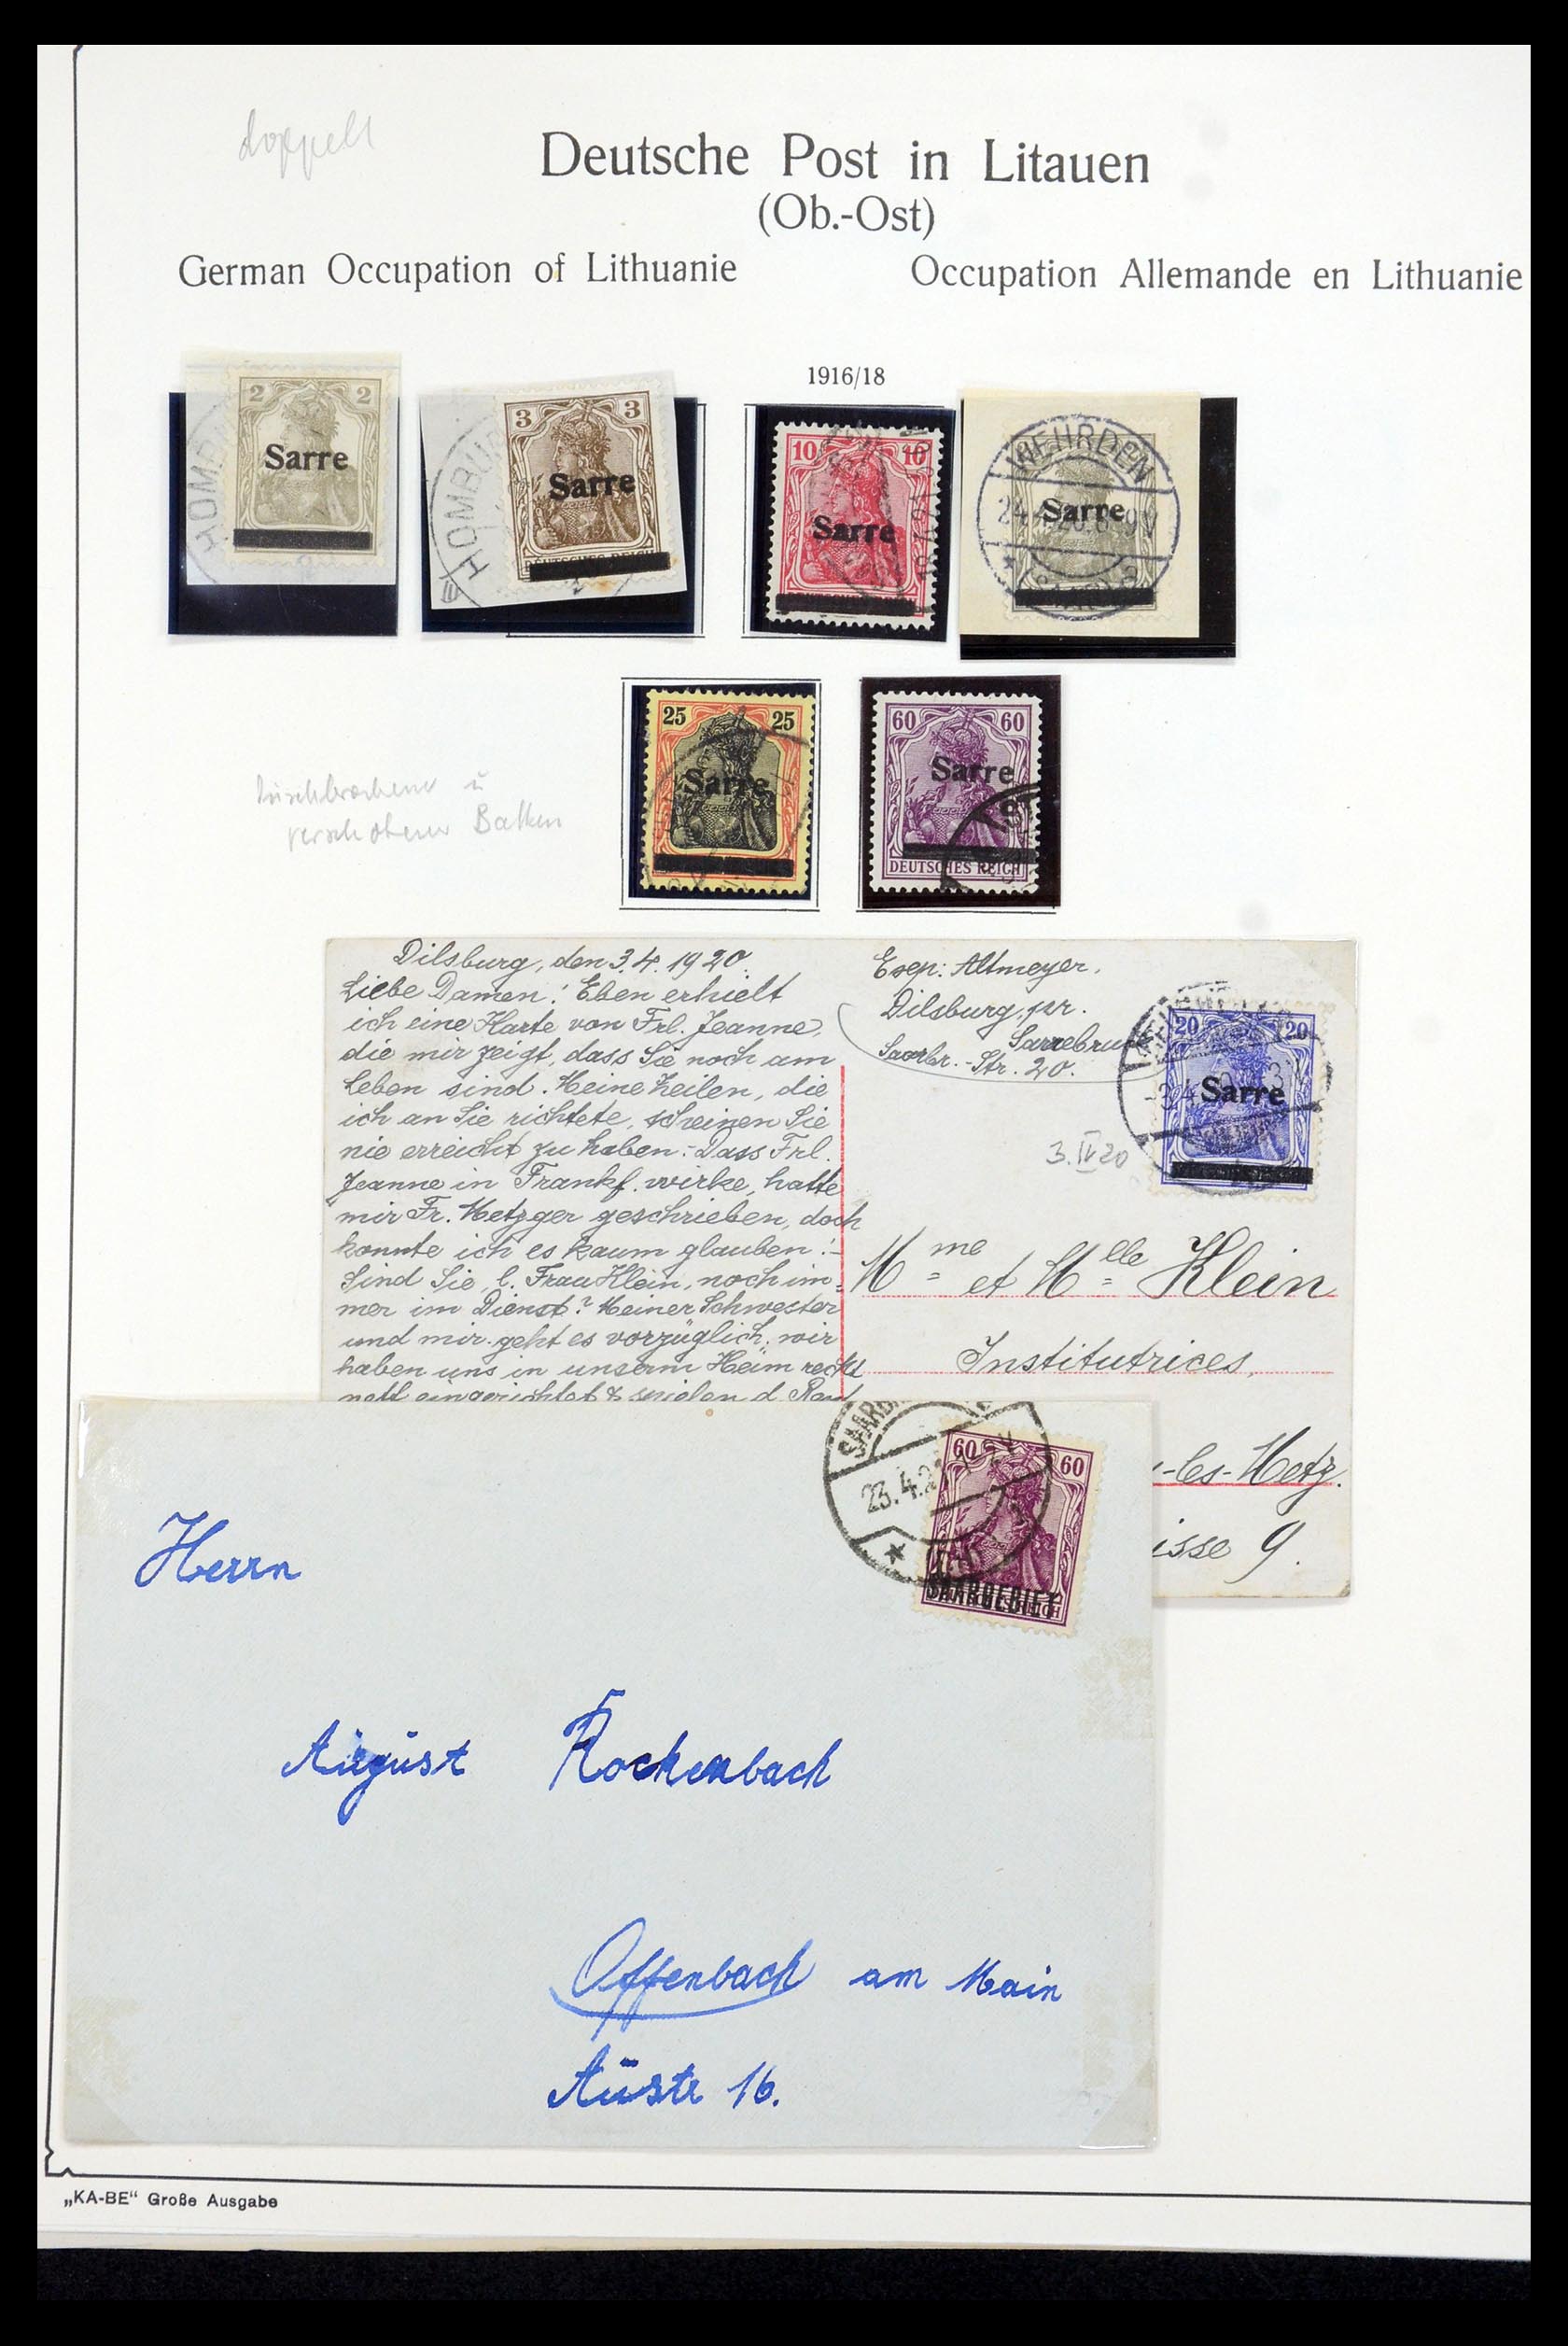 doppelt
Deutsche Post in Litauen
(Ob.-Ost)
German Occupation of Lithuanie
Occupation Allemande en Lithuanie
1916/18
2 2
Sarre
3 3
Sarre
10 10
Sarre
WEHRDEN
Sarre
25 25
Sarre
60 60
Sarre
DEUTSCHES REICH
verschobener Balken
Dilsburg, den 3.4.1920.
Liebe Damen! Eben erhielt
ich eine Karte von Frl. Jeanne,
die mir zeigt, dass Sie noch am
Leben sind. Meine Zeilen, die
ich an Sie richtete, scheinen Sie
nie erreicht zu haben. - Dass Frl.
Jeanne in Frankf. wirke, hatte
mir Fr. Metzger geschrieben, doch
konnte ich es kaum glauben! -
Sind Sie, l. Frau Klein, noch im-
mer im Dienst? Meiner Schwester
und mir geht es vorzüglich; wir
haben uns in unserm Heim recht
nett eingerichtet &
Exp: Altmeyer,
Dilsburg, pr.
Sarrebruck
Saarbr.-Str. 20.
20 20
Sarre
3.IV 20
Mme et Mlle Klein
Institutrices,
-les-Metz.
isse 9.
SAARB
23.4.2
60 60
SAARGEBIET
Herrn
August Rockenbach
Offenbach am Main
Austr 16.
„KA-BE“ Große Ausgabe